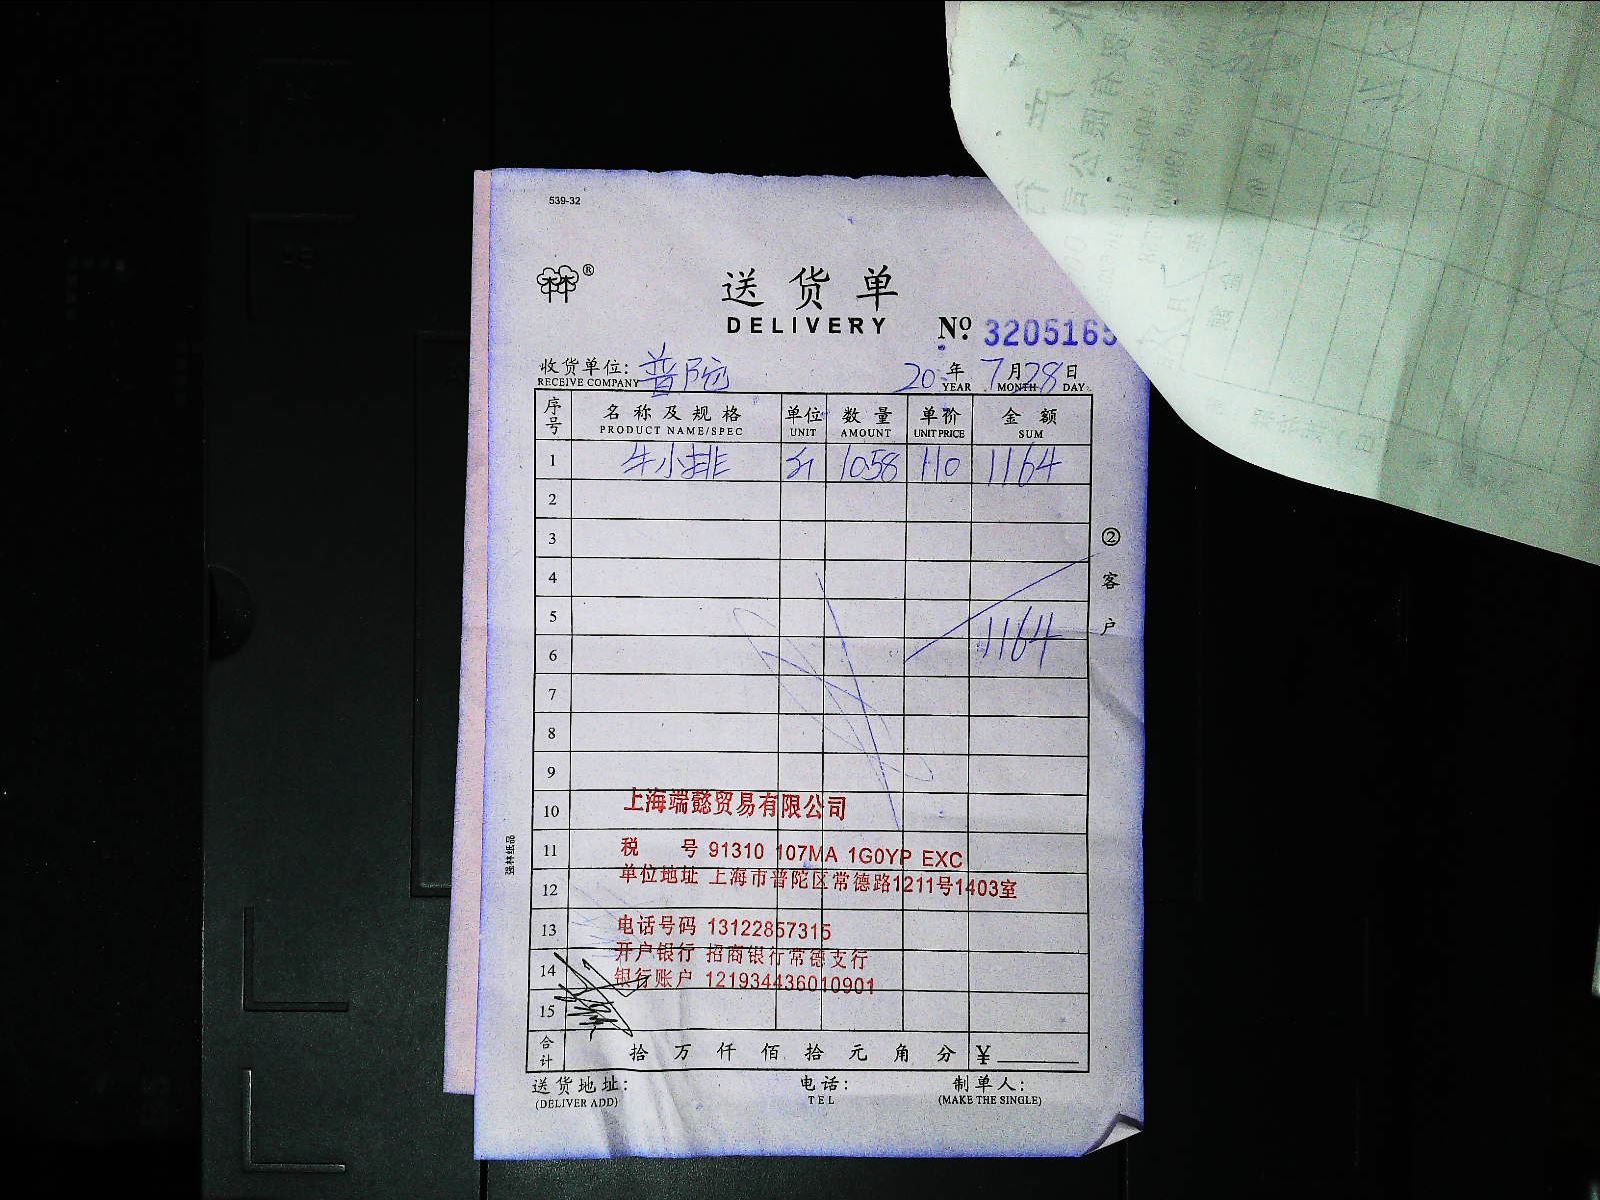 539-32
送货单
DELIVERY
No. 3205165
收货单位: 普陀 20 年 7 月 28 日
RECEIVE COMPANY YEAR MONTH DAY
序号 名称及规格 单位 数量 单价 金额
PRODUCT NAME/SPEC UNIT AMOUNT UNIT PRICE SUM
1 牛小排 斤 10.58 110 1164
2
3
4
5 1164
6
7
8
9
10 上海端懿贸易有限公司
11 税 号 91310 107MA 1G0YP EXC
12 单位地址 上海市普陀区常德路1211号1403室
13 电话号码 13122857315
开户银行 招商银行常德支行
14 银行账户 121934436010901
15
合计 拾 万 仟 佰 拾 元 角 分 ¥
送货地址: 电话: 制单人:
(DELIVER ADD) TEL (MAKE THE SINGLE)
②客户
强林纸品